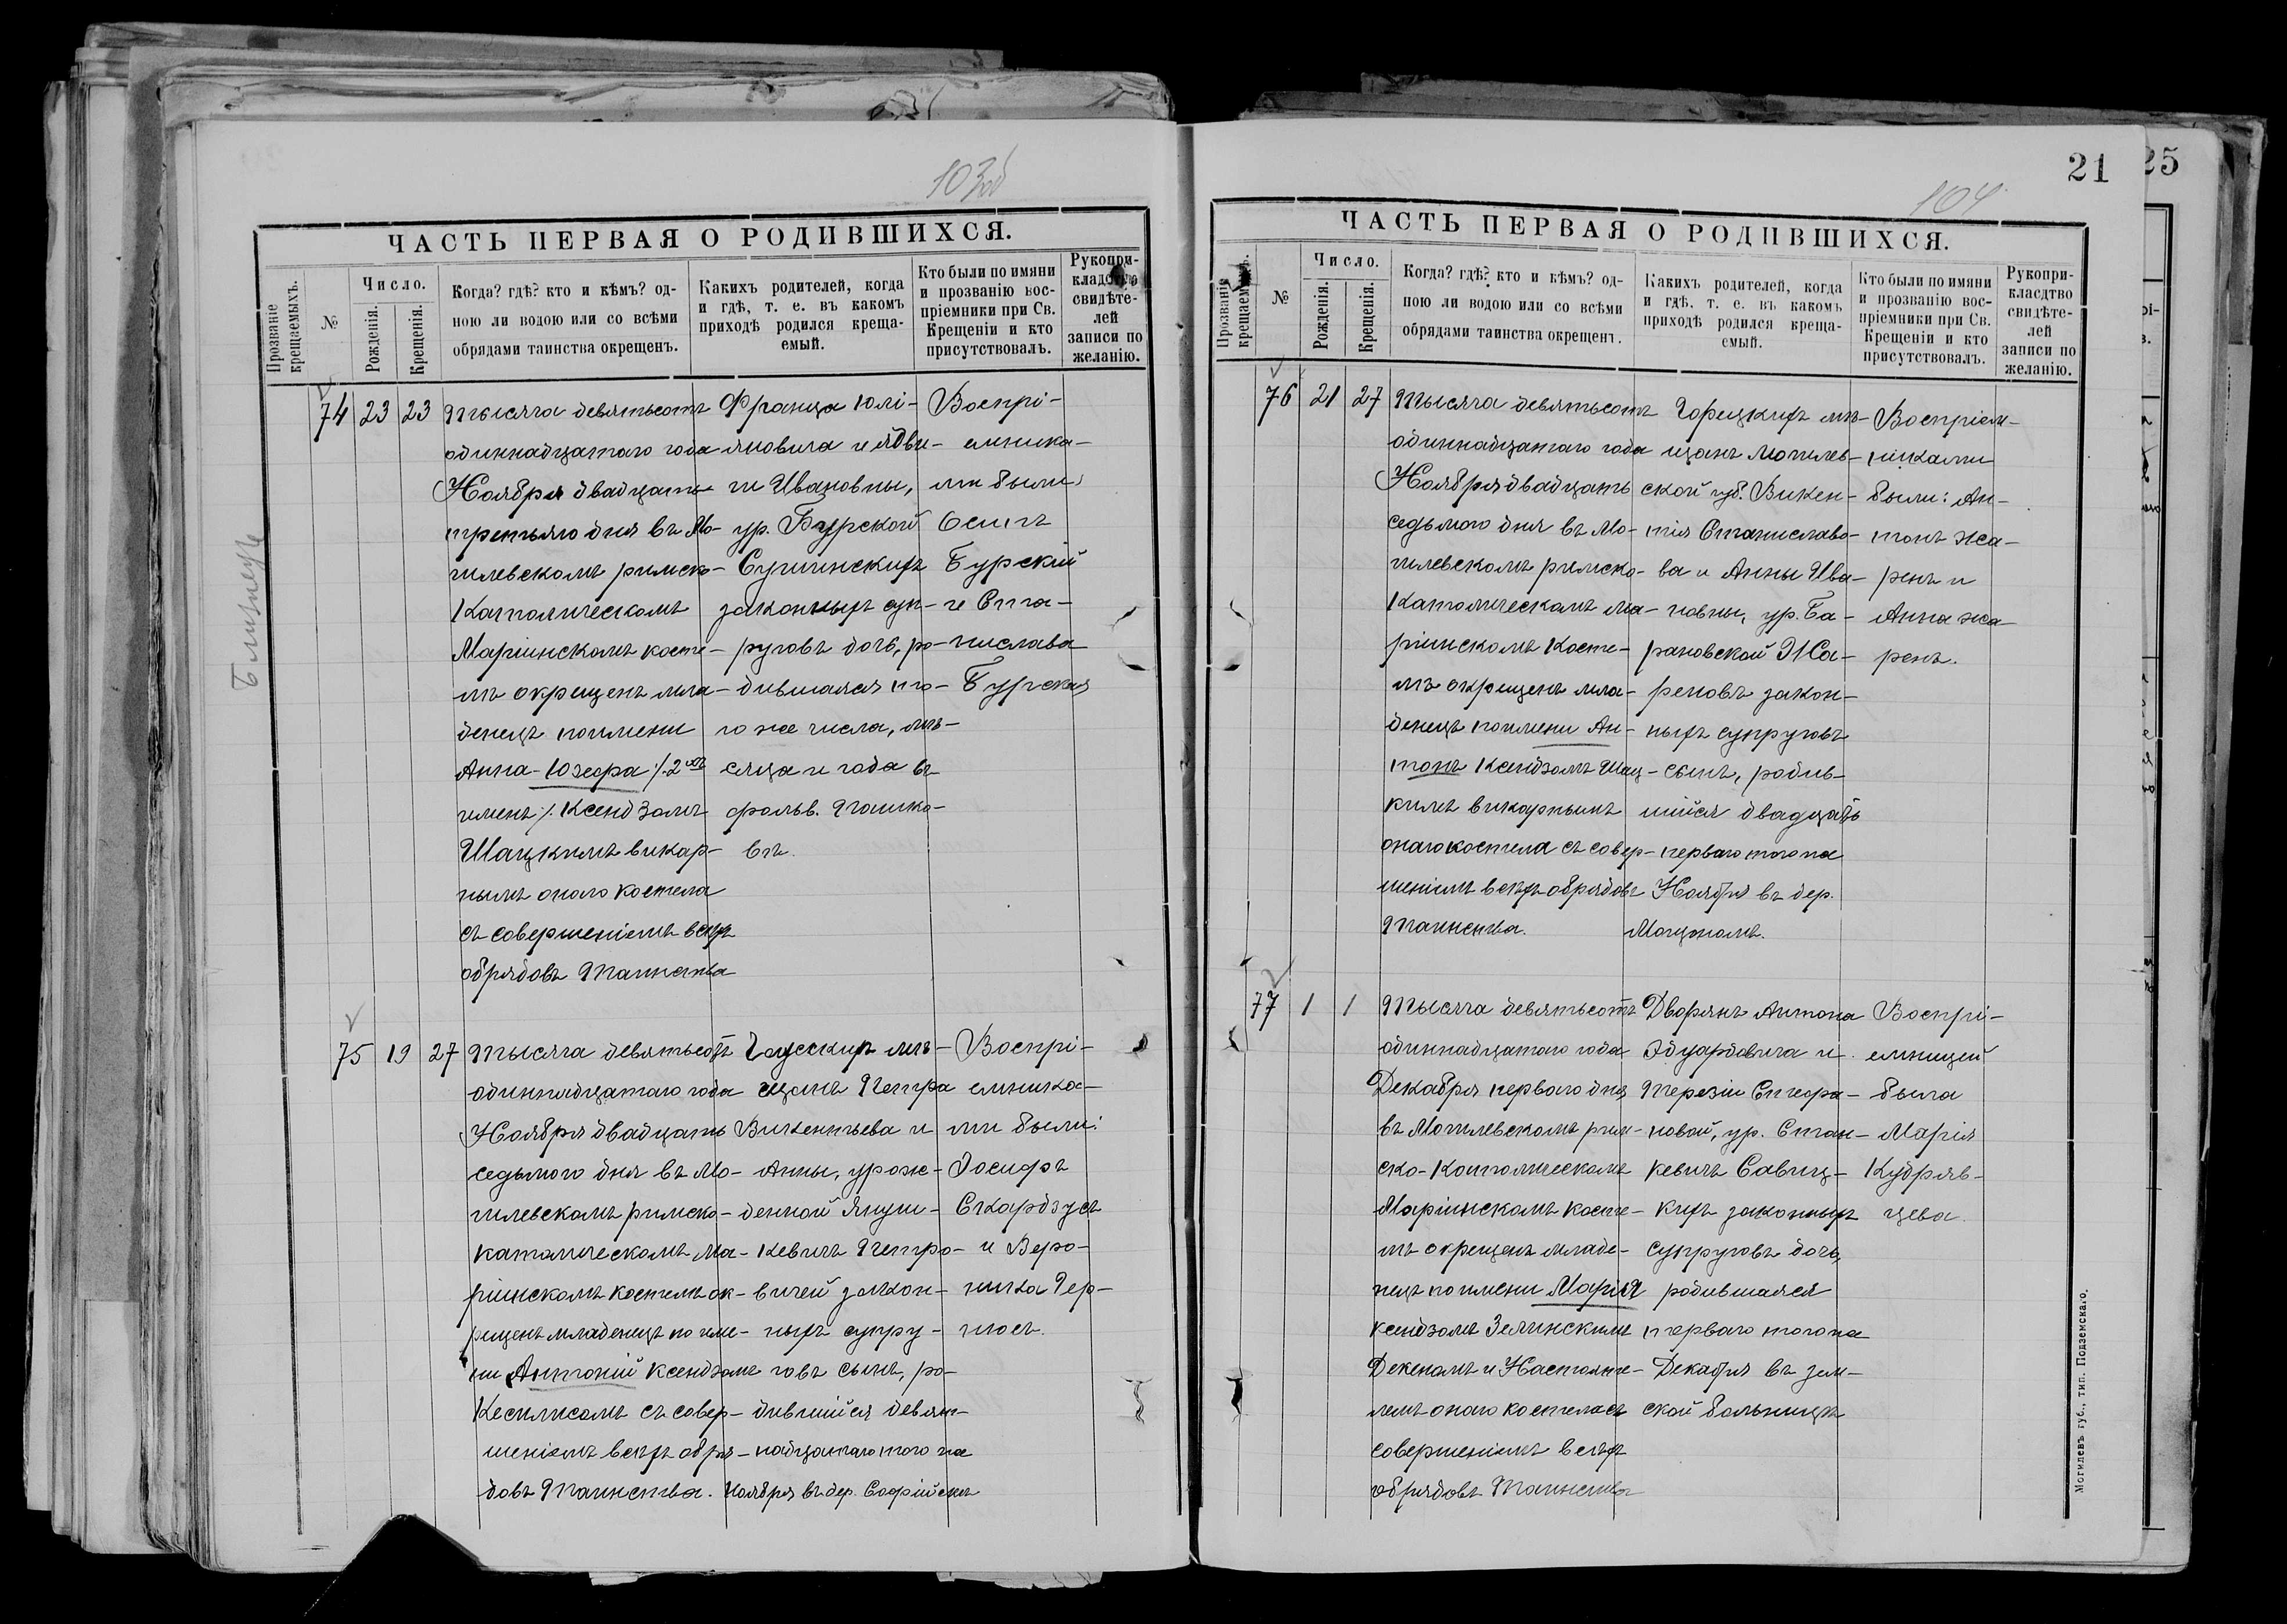 103об
ЧАСТЬ ПЕРВАЯ О РОДИВШИХСЯ.
Прозваніе крещаемыхъ.
№
Число.
Рожденія.
Крещенія.
Когда? гдѣ? кто и кѣмъ? од-
ною ли водою или со всѣми
обрядами таинства окрещенъ.
Каихъ родителей, когда
и гдѣ, т. е. въ какомъ
приходѣ родился креща-
емый.
Кто были по имяни
и прозванію вос-
пріемники при Св.
Крещеніи и кто
присутствовалъ.
Рукопри-
кладство
свидѣте-
лей
записи по
желанію.
Близнецы
74 23 23
Тысяча девятьсотъ
одиннадцатаго года
Ноября двадцать
третьяго дня въ Мо-
гилевскомъ римско-
Католическомъ
Маріинскомъ косте-
лѣ окрещенъ мла-
денецъ по имени
Анна-Юзефа /:2 имъ
именъ:/ Ксендзомъ
Шацкимъ викар-
нымъ онаго костела
съ совершеніемъ всѣхъ
обрядовъ Таинства
Франца Юлі-
яновича и Ядви-
ги Ивановны,
ур. Бурской
законныхъ суп-
руговъ дочь, ро-
дившаяся то-
го же числа, мѣ-
сяца и года въ
фольв.
Воспрі-
емника-
ми были
Осипъ
Бурскій
и Ста-
нислава
Бурская
75 19 27
Тысяча девятьсотъ
одиннадцатаго года
Ноября двадцать
седьмого дня въ Мо-
гилевскомъ римско-
католическомъ Ма-
ріинскомъ костелѣ ок-
рещенъ младенецъ по име-
ни Антоній ксендзомъ
съ совер-
шеніемъ всѣхъ обря-
довъ Таинства.
мѣ-
щанъ Петра
Викентьева и
Анны, урож-
денной Януш-
кевичъ Петро-
вичей закон-
ныхъ супру-
говъ сынъ, ро-
дившійся девят-
надцатаго того же
Ноября въ дер. Софійскѣ
Воспрі-
емника-
ми были:
Іосифъ
и Веро-
ника
21
104
ЧАСТЬ ПЕРВАЯ О РОДИВШИХСЯ.
Прозваніе крещаемыхъ.
№
Число.
Рожденія.
Крещенія.
Когда? гдѣ? кто и кѣмъ? од-
ною ли водою или со всѣми
обрядами таинства окрещенъ.
Какихъ родителей, когда
и гдѣ, т. е. въ какомъ
приходѣ родился креща-
емый.
Кто были по имяни
и прозванію вос-
пріемники при Св.
Крещеніи и кто
присутствовалъ.
Рукопри-
класдтво
свидѣте-
лей
записи по
желанію.
76 21 27
Тысяча девятьсотъ
одиннадцатаго года
Ноября двадцать
седьмого дня въ Мо-
гилевскомъ римско-
Католическомъ Ма-
ріинскомъ Косте-
лѣ окрещенъ мла-
денецъ по имени Ан-
тонъ Ксендзомъ Шац-
кимъ викарнымъ
онаго костела съ совер-
шеніемъ всѣхъ обрядовъ
Таинства.
Горецкихъ мѣ-
щанъ Могилев-
ской губ. Викен-
тія Станиславо-
ва и Анны Ива-
новны, ур. Ба-
рановской Жа-
реновъ закон-
ныхъ супруговъ
сынъ, родив-
шійся двадцать
перваго того же
Ноября въ дер.
Воспріем-
никами
были: Ан-
тонъ Жа-
ренъ и
Анна Жа-
ренъ.
77 1 1
Тысяча девятьсотъ
одиннадцатаго года
Декабря перваго дня
въ Могилевскомъ рим-
ско-Католическомъ
Маріинскомъ косте-
лѣ окрещенъ младе-
нецъ по имени Марія
ксендзомъ Зелинскимъ
Деканомъ и Настояте-
лемъ онаго костела съ
совершеніемъ всѣхъ
обрядовъ Таинства
Дворянъ Антона
Эдуардовича и
Терезіи Стефа-
новой, ур. Стан-
кевичъ Савиц-
кихъ законныхъ
супруговъ дочь,
родившаяся
перваго того же
Декабря въ зем-
ской больницѣ
Воспрі-
емницей
была
Марія
Кудряв-
цева.
Могилевъ губ., тип. Подземскаго.
25